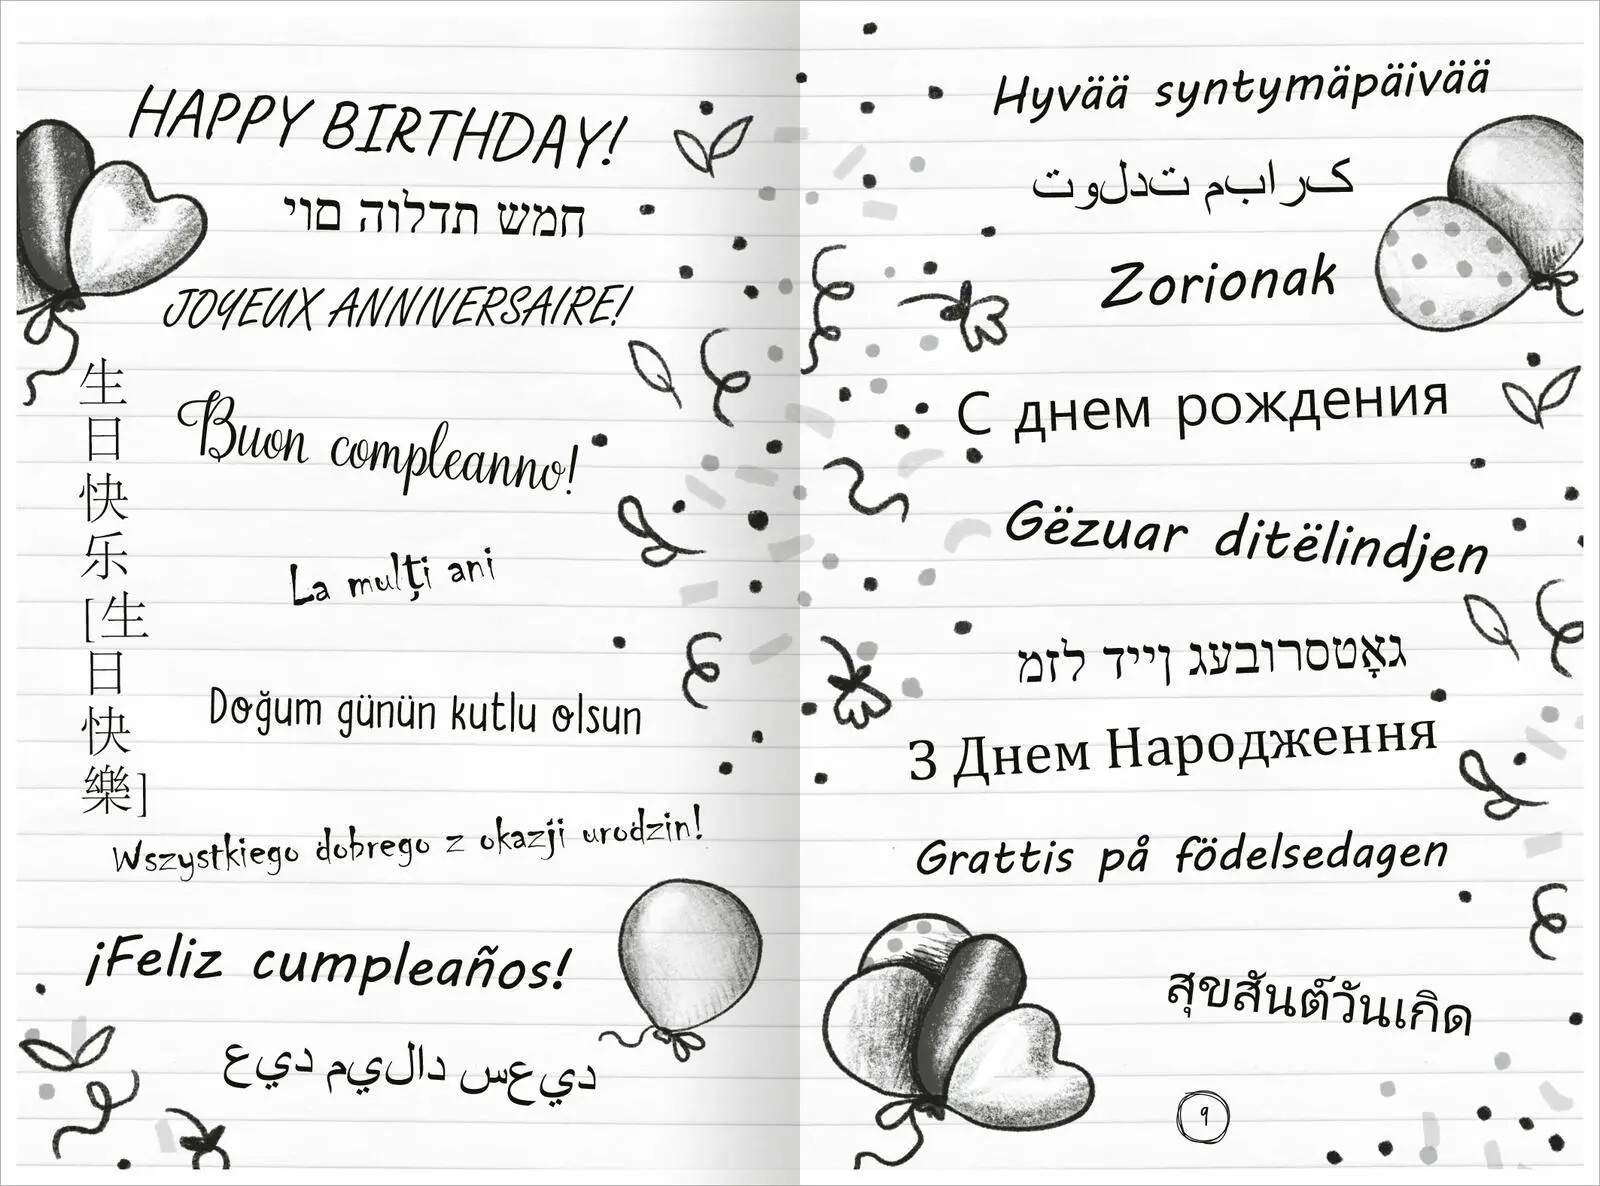 HAPPY BIRTHDAY!
חמש תדלוה םוי
JOYEUX ANNIVERSAIRE!
生日快乐[生日快樂]
Buon compleanno!
La mulți ani
Doğum günün kutlu olsun
Wszystkiego dobrego z okazji urodzin!
¡Feliz cumpleaños!
ديعس داليم ديع
Hyvää syntymäpäivää
کرابم تدلوت
Zorionak
С днем рождения
Gëzuar ditëlindjen
גאָטסרובעג ןייד לזמ
З Днем Народження
Grattis på födelsedagen
สุขสันต์วันเกิด
9